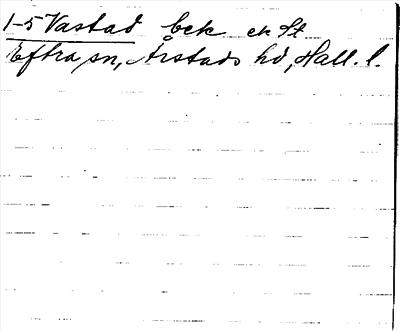 1-5 Vastad bck ek St
Eftra sn, Årstads hd, Hall. l.